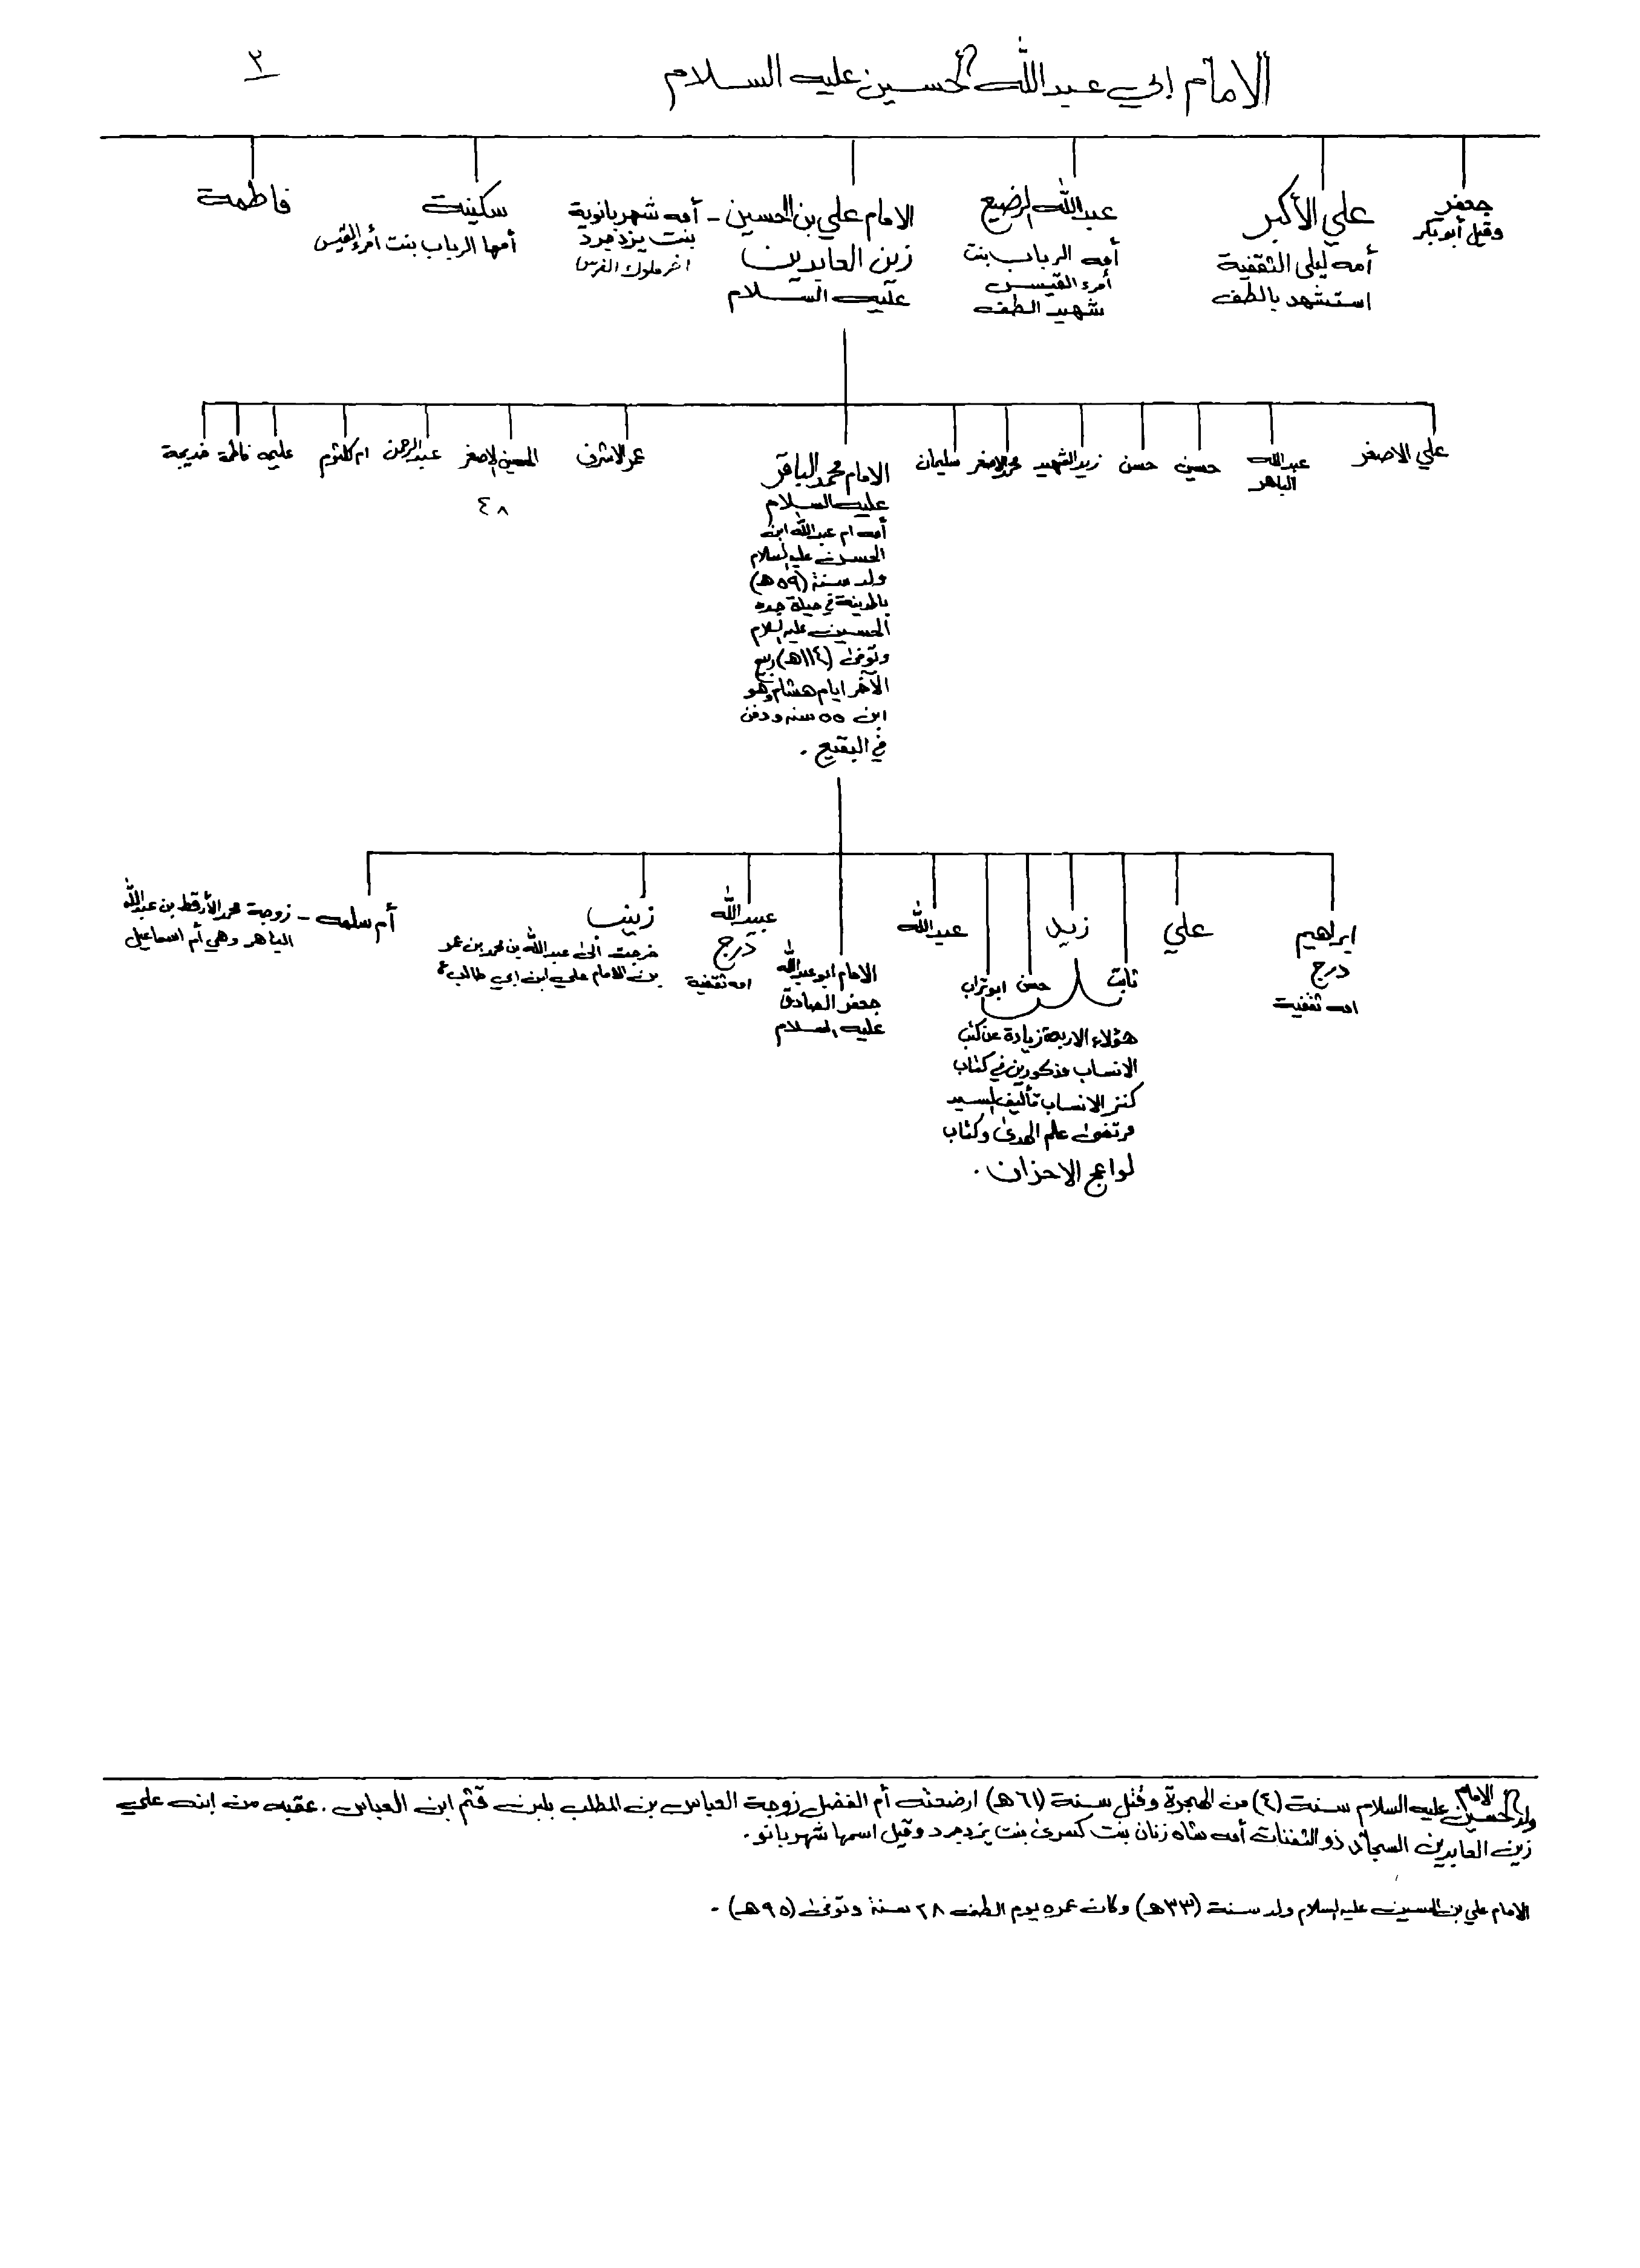 ٣
الامام ابي عبدالله الحسين عليه السلام
جعفر
وقيل أبو بكر
علي الأكبر
أمه ليلى الثقفية
استشهد بالطف
عبدالله الرضيع
أمه الرباب بنت
أمرء القيس
شهيد الطف
الامام علي بن الحسين -
زين العابدين
عليه السلام
أمه شهربانوية
بنت يزدجرد
اخر ملوك الفرس
سكينة
أمها الرباب بنت أمرء القيس
فاطمة
علي الاصغر
عبدالله
الباهر
حسين
حسن
زيد الشهيد
محمد الاصغر
سليمان
الامام محمد الباقر
عليه السلام
أمه ام عبدالله ابنة
الحسن عليه السلام
ولد سنة (٥٩هـ)
بالمدينة في حياة جده
الحسين عليه السلام
وتوفى (١١٤هـ) ربيع
الآخر ايام هشام وهو
ابن ٥٥ سنه ودفن
في البقيع .
عمر الاشرف
الحسين الاصغر
٤٨
عبدالرحمن
ام كلثوم
عليه
فاطمة
خديجة
ابراهيم
درج
امه ثقفية
علي
ثابت
زيد
حسن
ابو تراب
هؤلاء الاربعة زيادة عن كتب
الانساب مذكورين في كتاب
كنز الانساب تأليف السيد
مرتضى علم الهدى وكتاب
لواعج الاحزان .
عبدالله
الامام ابو عبدالله
جعفر الصادق
عليه السلام
عبيدالله
درج
امه ثقفية
زينب
خرجت الى عبدالله بن محمد بن عمر
بن الامام علي ابن ابي طالب ع
أم سلمه - زوجة محمد الأرقط بن عبدالله
الباهر وهي أم اسماعيل
ولد الامام الحسين عليه السلام سنة (٤) من الهجرة وقتل سنة (٦١هـ) ارضعته أم الفضل زوجة العباس بن المطلب بلبن قثم ابن العباس . عقبه من ابنه علي
زين العابدين السجاد ذو الثفنات أمه شاه زنان بنت كسرى بنت يزدجرد وقيل اسمها شهربانو .
الامام علي بن الحسين عليه السلام ولد سنة (٣٣هـ) وكان عمره يوم الطف ٢٨ سنة وتوفى (٩٥هـ) .